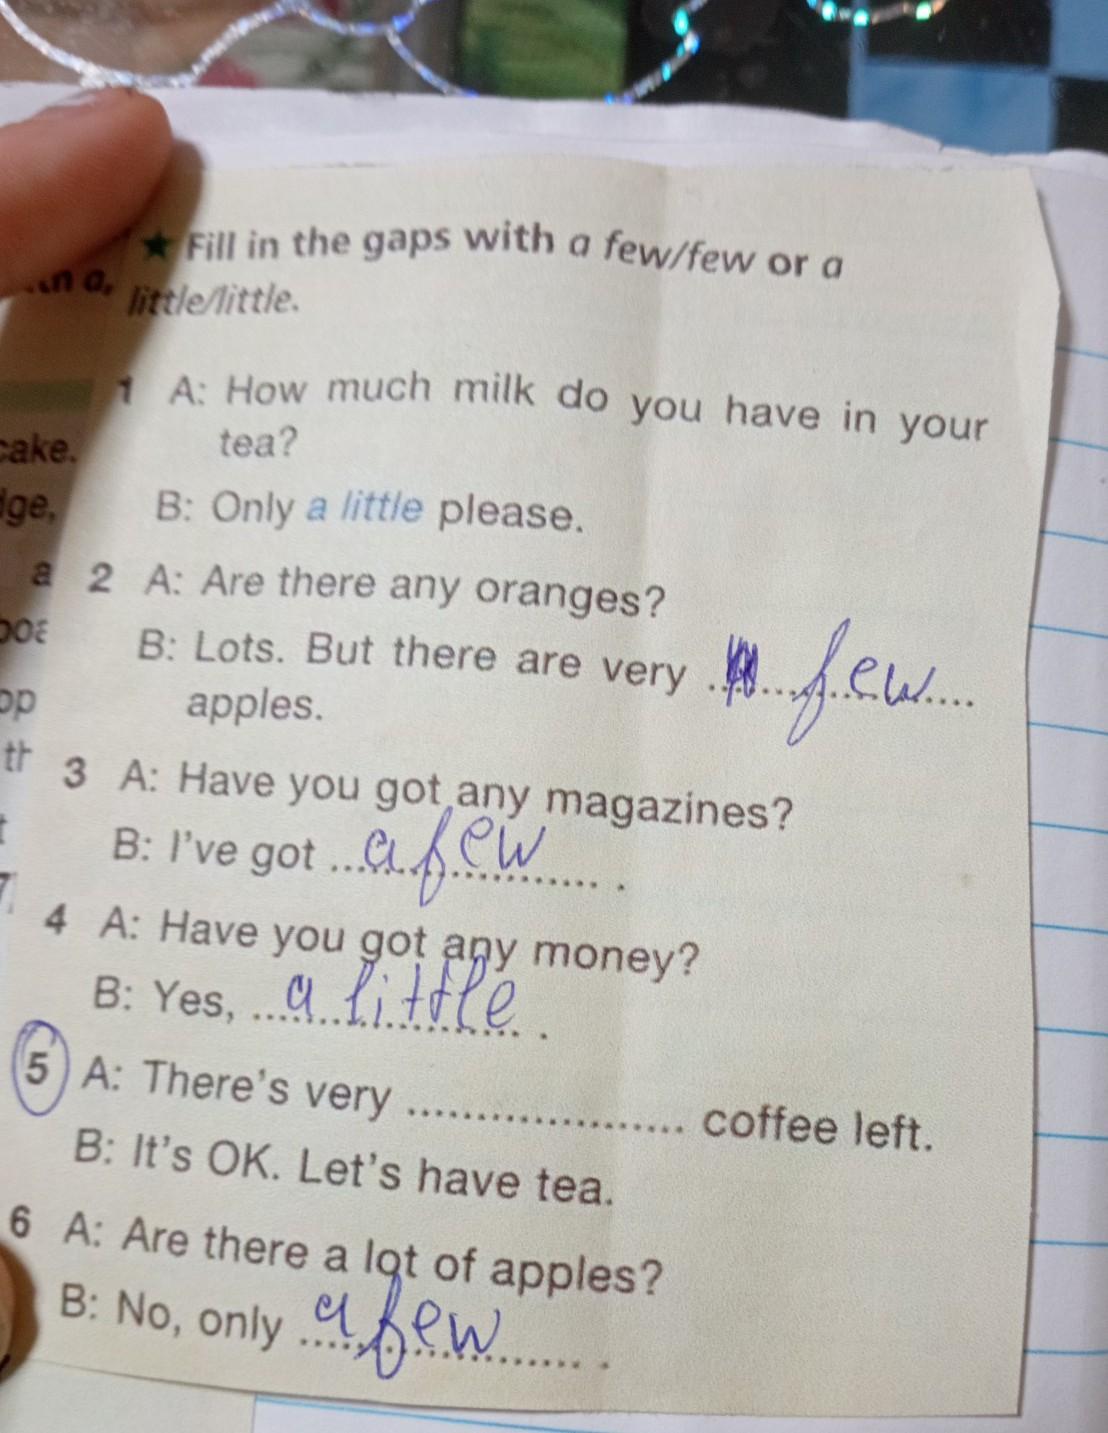 ★ Fill in the gaps with a few/few or a
little/little.
1 A: How much milk do you have in your
tea?
B: Only a little please.
2 A: Are there any oranges?
B: Lots. But there are very .... few ....
apples.
3 A: Have you got any magazines?
B: I've got ... a few ............ .
4 A: Have you got any money?
B: Yes, ... a little ... .
5 A: There's very ..................... coffee left.
B: It's OK. Let's have tea.
6 A: Are there a lot of apples?
B: No, only ... a few ............ .
cake.
a
th